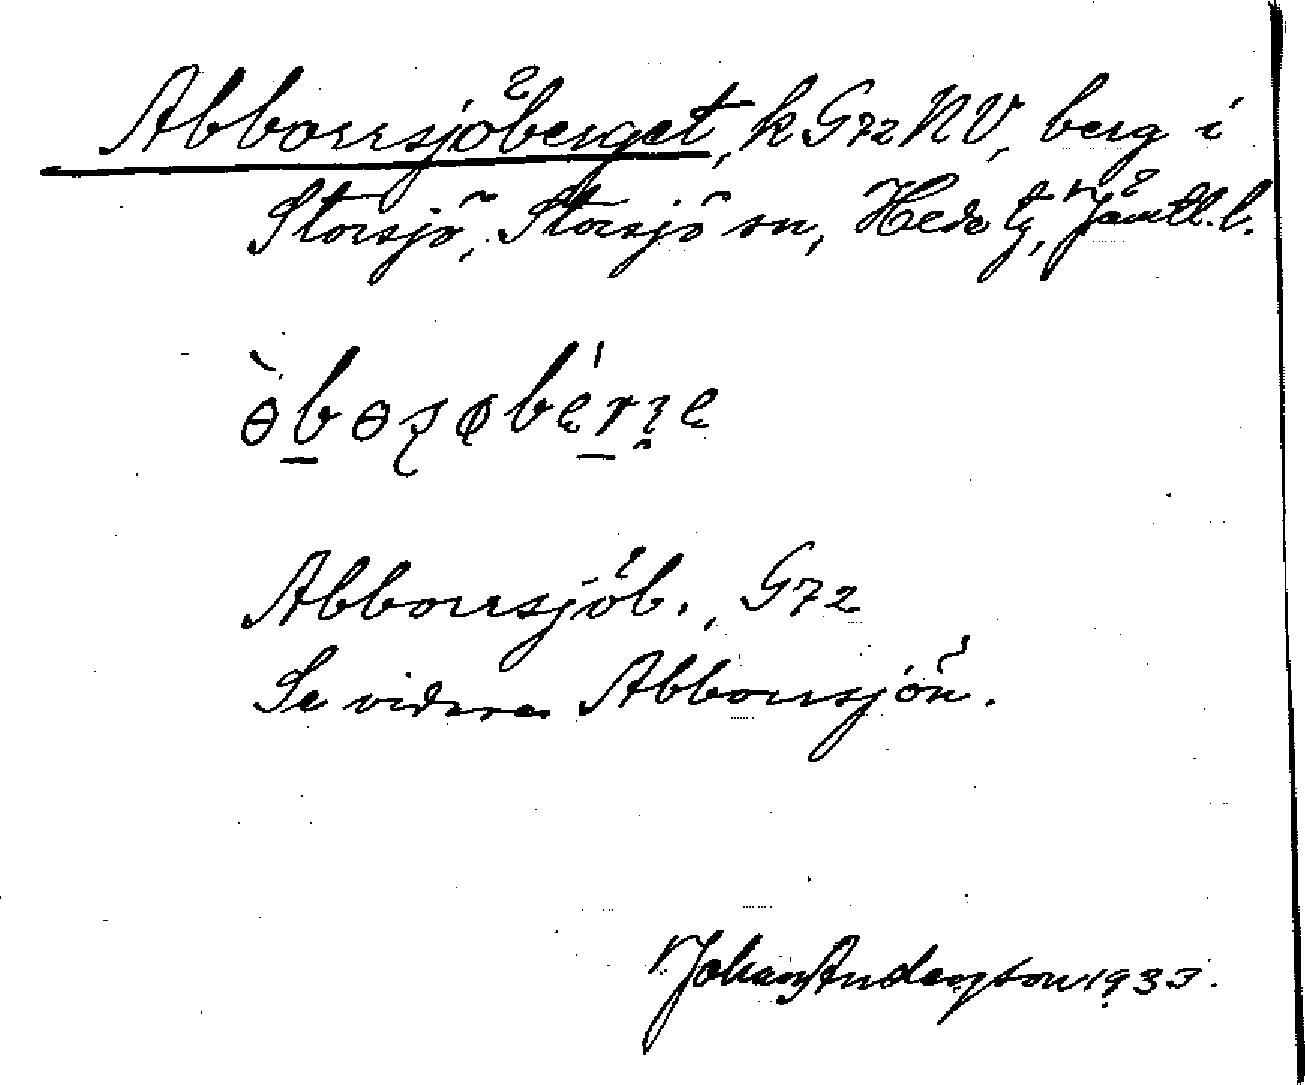 Abborrsjöberget, k G72NV, berg i
Storsjö, Storsjö sn, Hede tg, Jämtl. l.
Abborrsjöb., G72
Se vidare Abborrsjön.
Johan Anderzson 1933.